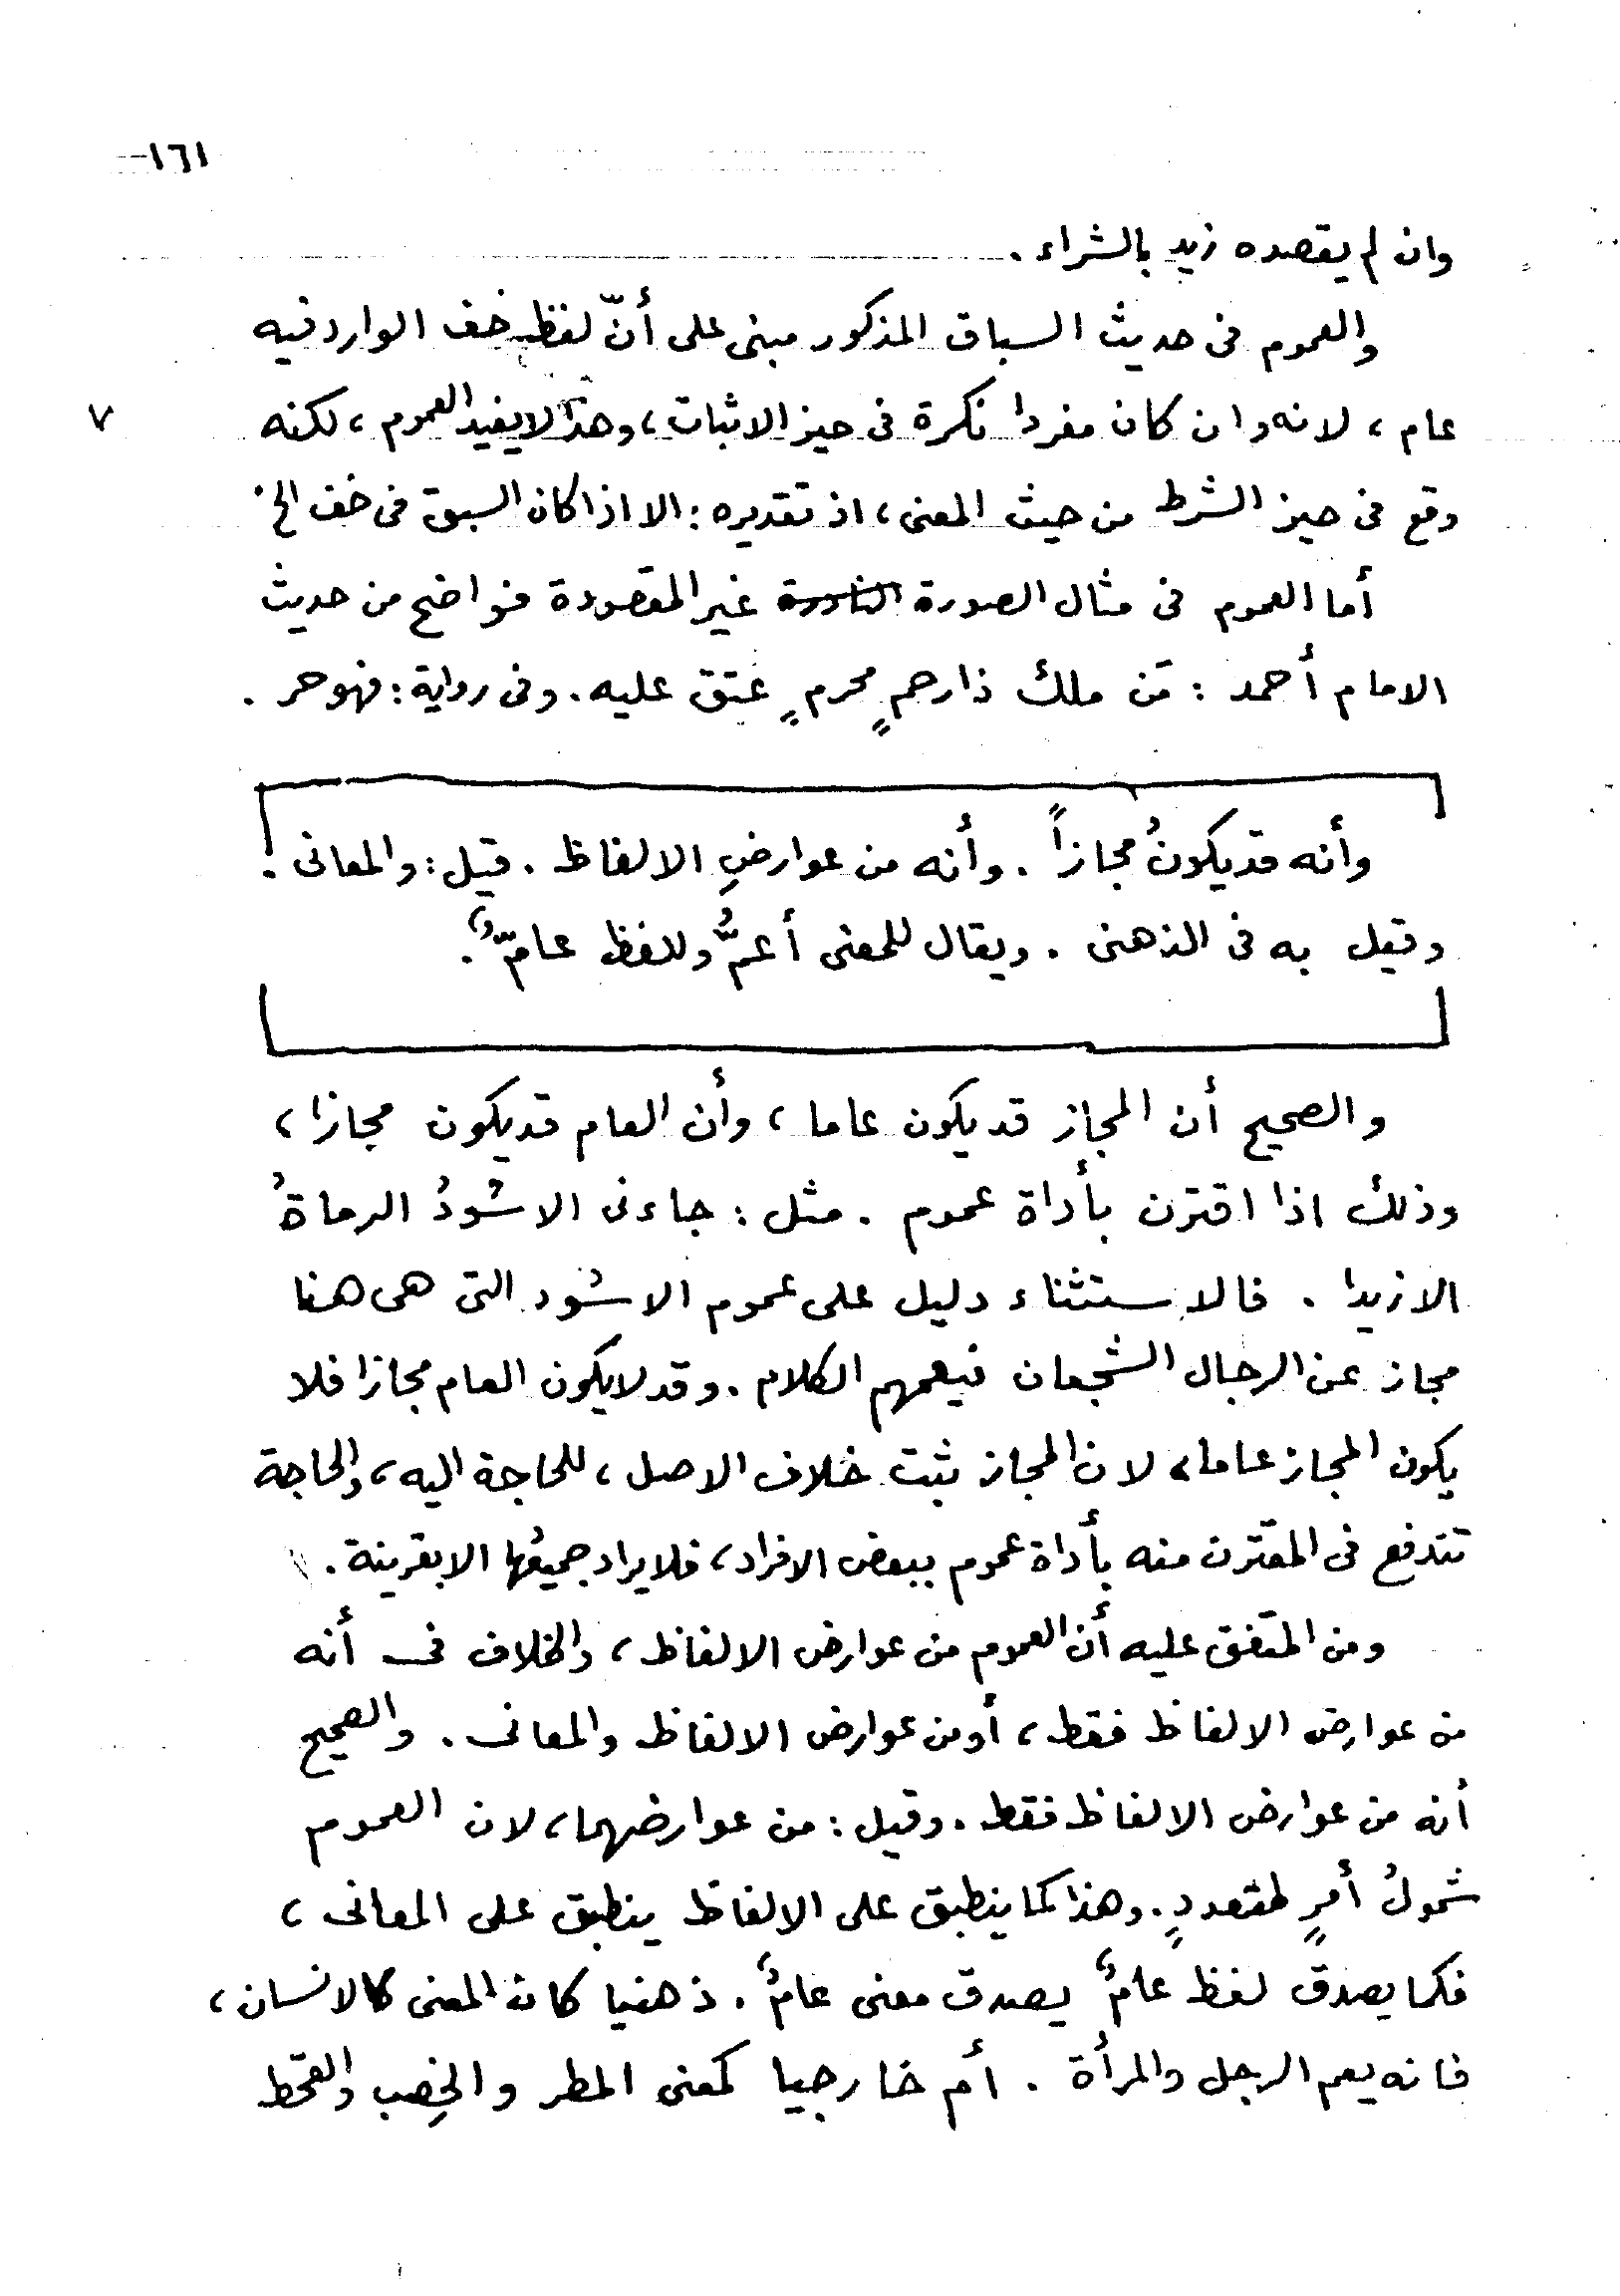 ١٦١-
وان لم يقصده زيد بالشراء .
والعموم فى حديث السباق المذكور مبنى على أنّ لفظ خف الوارد فيه
عام ، لانه وان كان مفردا نكرة فى حيز الاثبات ، وهذا لا يفيد العموم ، لكنه
٧
وقع فى حيز الشرط من حيث المعنى ، اذ تقديره : الا اذا كان السبق فى خف الخ .
أما العموم فى مثال الصورة غير المقصودة فواضح من حديث
الامام أحمد : مَن ملك ذا رحمٍ محرمٍ عتق عليه . وفى رواية : فهو حر .
وأنه قد يكونُ مجازاً . وأنه من عوارضِ الالفاظ . قيل : والمعانى .
وقيل به فى الذهنى . ويقال للمعنى أعمُّ وللفظ عامٌّ .
والصحيح أن المجاز قد يكون عاما ، وأن العام قد يكون مجازا ،
وذلك اذا اقترن بأداة عموم . مثل : جاءنى الاسُودُ الرماةُ
الا زيدا . فالاستثناء دليل على عموم الاسُود التى هى هنا
مجاز عن الرجال الشجعان فيعمهم الكلام . وقد لا يكون العام مجازا فلا
يكون المجاز عاما ، لان المجاز ثبت خلاف الاصل ، للحاجة اليه ، والحاجة
تندفع فى المقترن منه بأداة عموم ببعض الافراد ، فلا يراد جميعُها الا بقرينة .
ومن المتفق عليه أن العموم من عوارض الالفاظ ، والخلاف فى أنه
من عوارض الالفاظ فقط ، أو من عوارض الالفاظ والمعانى . والصحيح
أنه من عوارض الالفاظ فقط . وقيل : من عوارضهما ، لان العموم
شمولُ أمرٍ لمتعددٍ . وهذا كما ينطبق على الالفاظ ينطبق على المعانى ،
فكما يصدق لفظ عامٌ يصدق معنى عامٌ . ذهنيا كان المعنى كالانسان ،
فانه يعم الرجل والمرأة . أم خارجيا كمعنى المطر والخِصب والقحط